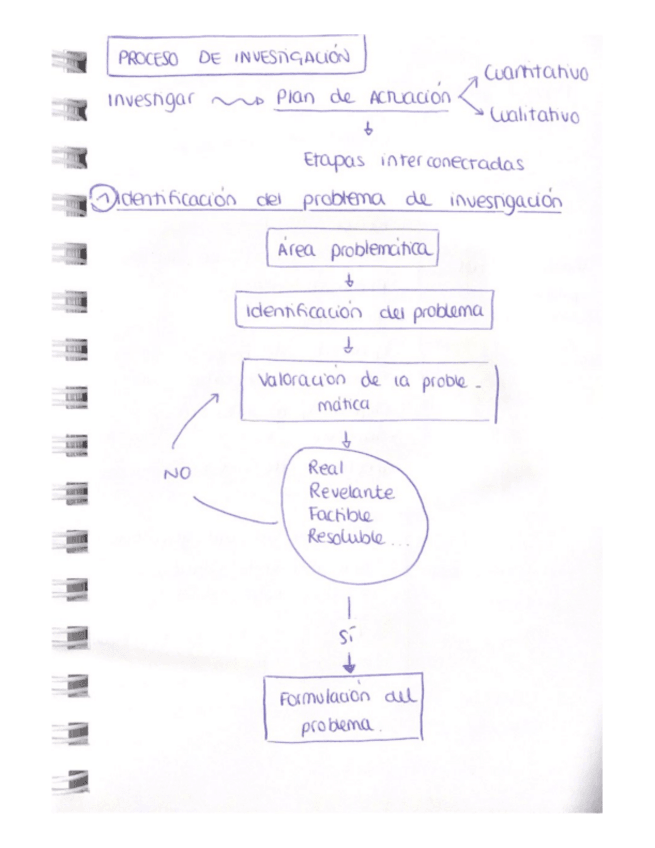 PROCESO DE INVESTIGACIÓN
Investigar Plan de Actuación Cuantitativo
Cualitativo
Etapas interconectadas
1 Identificación del problema de investigación
Área problemática
Identificación del problema
Valoración de la proble-
mática
Real
NO
Revelante
Factible
Resoluble...
SÍ
Formulación del
problema.